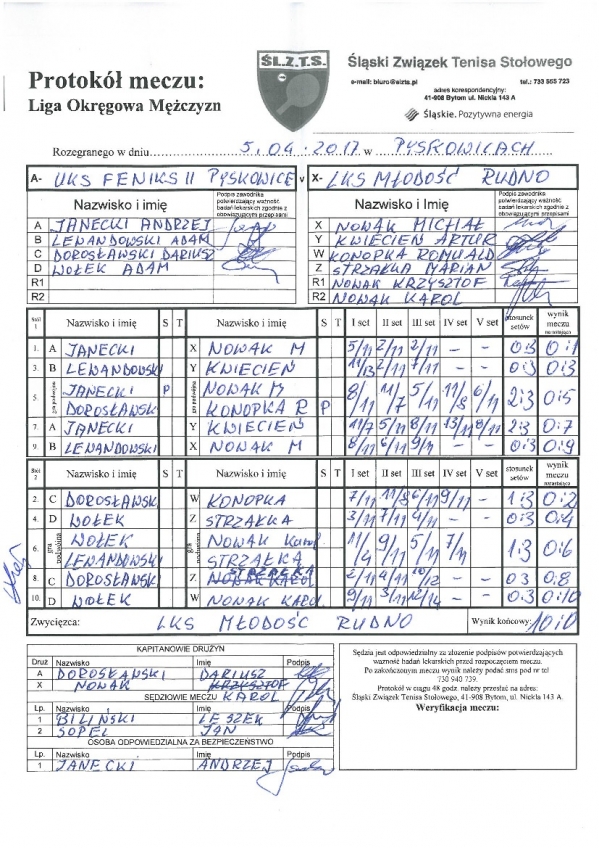 ŚL.Z.T.S.
Protokół meczu:
Liga Okręgowa Mężczyzn
Śląski Związek Tenisa Stołowego
e-mail: biuro@slzts.pl tel.: 733 555 723
adres korespondencyjny:
41-908 Bytom ul. Nickla 143 A
Śląskie. Pozytywna energia
Rozegranego w dniu 5.04.2017 w PYSKOWICACH
A- UKS FENIKS II PYSKOWICE v X- LKS MŁODOŚĆ RUDNO
Nazwisko i Imię Podpis zawodnika potwierdzający ważność badań lekarskich zgodnie z obowiązującymi przepisami Nazwisko i Imię Podpis zawodnika potwierdzający ważność badań lekarskich zgodnie z obowiązującymi przepisami
A JANECKI ANDRZEJ X NOWAK MICHAŁ
B LEWANDOWSKI ADAM Y KWIECIEŃ ARTUR
C DOROSŁAWSKI DARIUSZ W KONOPKA ROMUALD
D WOŁEK ADAM Z STRZAŁKA MARIAN
R1 R1 NOWAK KRZYSZTOF
R2 R2 NOWAK KAROL
Stół 1 Nazwisko i imię S T Nazwisko i imię S T I set II set III set IV set V set stosunek setów wynik meczu narastająco
1. A JANECKI X NOWAK M 5/11 2/11 2/11 - - 0:3 0:1
3. B LEWANDOWSKI Y KWIECIEŃ 11/13 2/11 7/11 - - 0:3 0:3
5. gra podwójna JANECKI P NOWAK M 8/11 11/7 5/11 11/8 6/11 2:3 0:5
DOROSŁAWSKI KONOPKA R P
7. A JANECKI Y KWIECIEŃ 11/7 5/11 8/11 13/11 8/11 2:3 0:7
9. B LEWANDOWSKI X NOWAK M 8/11 6/11 9/11 - - 0:3 0:9
Stół 2 Nazwisko i imię S T Nazwisko i imię S T I set II set III set IV set V set stosunek setów wynik meczu narastająco
2. C DOROSŁAWSKI W KONOPKA 7/11 11/8 6/11 9/11 - 1:3 0:2
4. D WOŁEK Z STRZAŁKA 3/11 7/11 4/11 - - 0:3 0:4
6. gra podwójna WOŁEK gra podwójna NOWAK Karol 11/4 9/11 5/11 7/11 1:3 0:6
LEWANDOWSKI STRZAŁKA
8. C DOROSŁAWSKI Z STRZAŁKA NOWAK KAROL 2/11 9/11 10/12 - - 0:3 0:8
10. D WOŁEK W NOWAK KAROL 9/11 3/11 12/14 - - 0:3 0:10
Zwycięzca: LKS MŁODOŚĆ RUDNO Wynik końcowy: 10:0
KAPITANOWIE DRUŻYN
Druż Nazwisko Imię Podpis
A DOROSŁAWSKI DARIUSZ
X NOWAK KRZYSZTOF
SĘDZIOWIE MECZU KAROL
L.p. Nazwisko Imię Podpis
1 BILIŃSKI LESZEK
2 SOPEL JAN
OSOBA ODPOWIEDZIALNA ZA BEZPIECZEŃSTWO
Lp. Nazwisko Imię Podpis
1 JANECKI ANDRZEJ
Sędzia jest odpowiedzialny za złożenie podpisów potwierdzających
ważność badań lekarskich przed rozpoczęciem meczu.
Po zakończonym meczu wynik należy podać sms pod nr tel
730 940 739.
Protokół w ciągu 48 godz. należy przesłać na adres:
Śląski Związek Tenisa Stołowego, 41-908 Bytom, ul. Nickla 143 A.
Weryfikacja meczu: